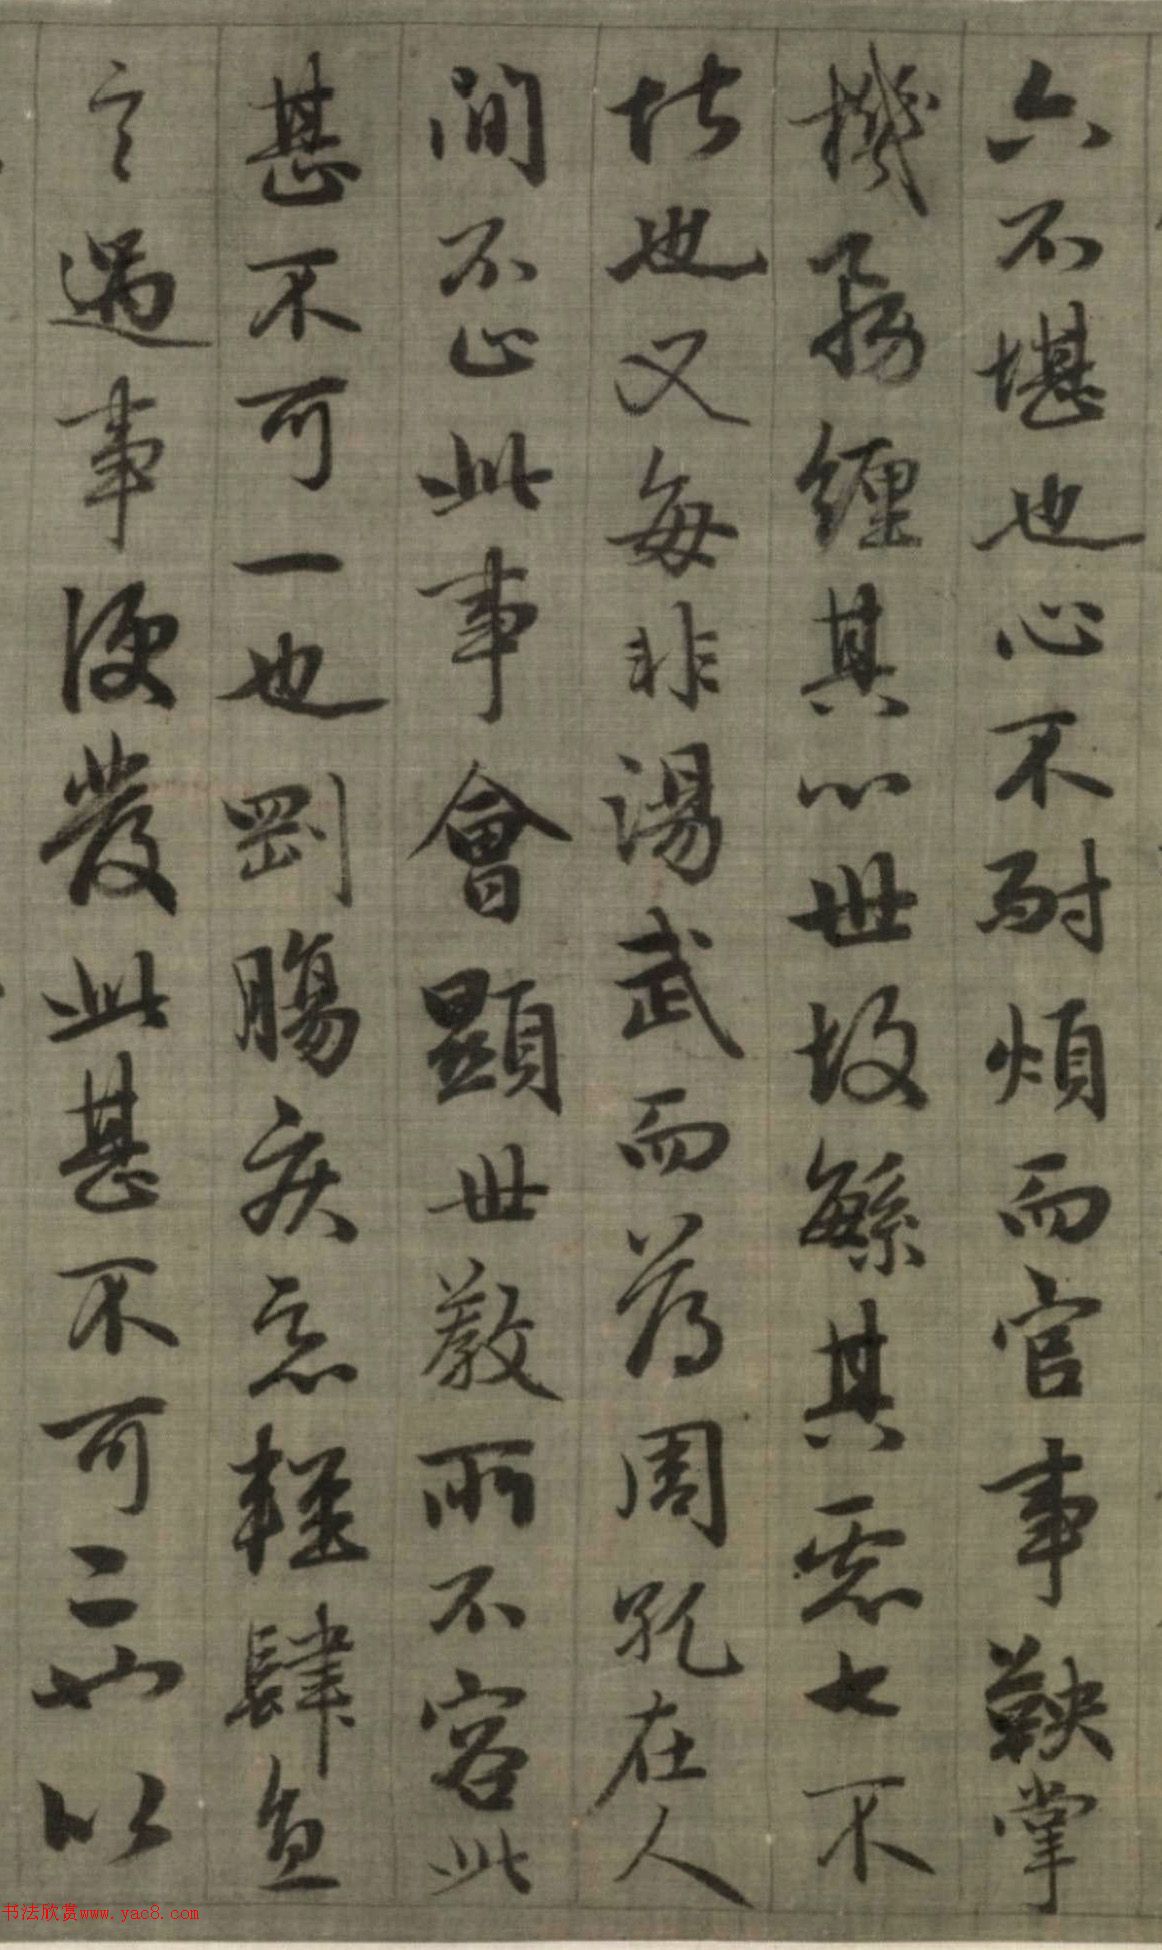 六不堪也心不耐煩而官事鞅掌
機務纏其心世故繁其慮七不
堪也又每非湯武而薄周孔在人
間不止此事會顯世教所不容此
甚不可一也剛腸疾惡輕肆直
言遇事便發此甚不可二也以
书法欣赏www.yac8.com